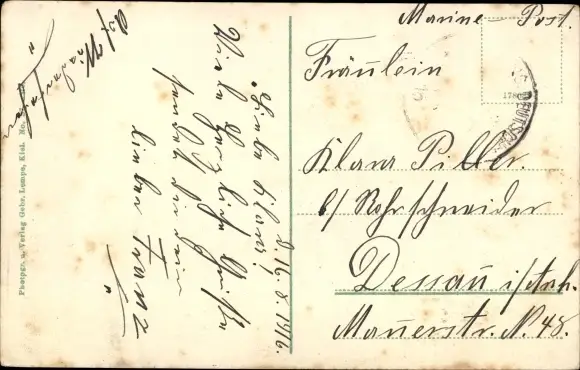 Marine-Post.
Fräulein
Klara Piller.
b/ Rohrschneider
Dessau i/Anh.
Mauerstr. N. 48.
16.8.1916.
Liebe Klara!
Viele herzliche Grüße
sendet Dir Dein
lieber Franz
Photogr. u. Verlag Gebr. Lempe, Kiel. No.